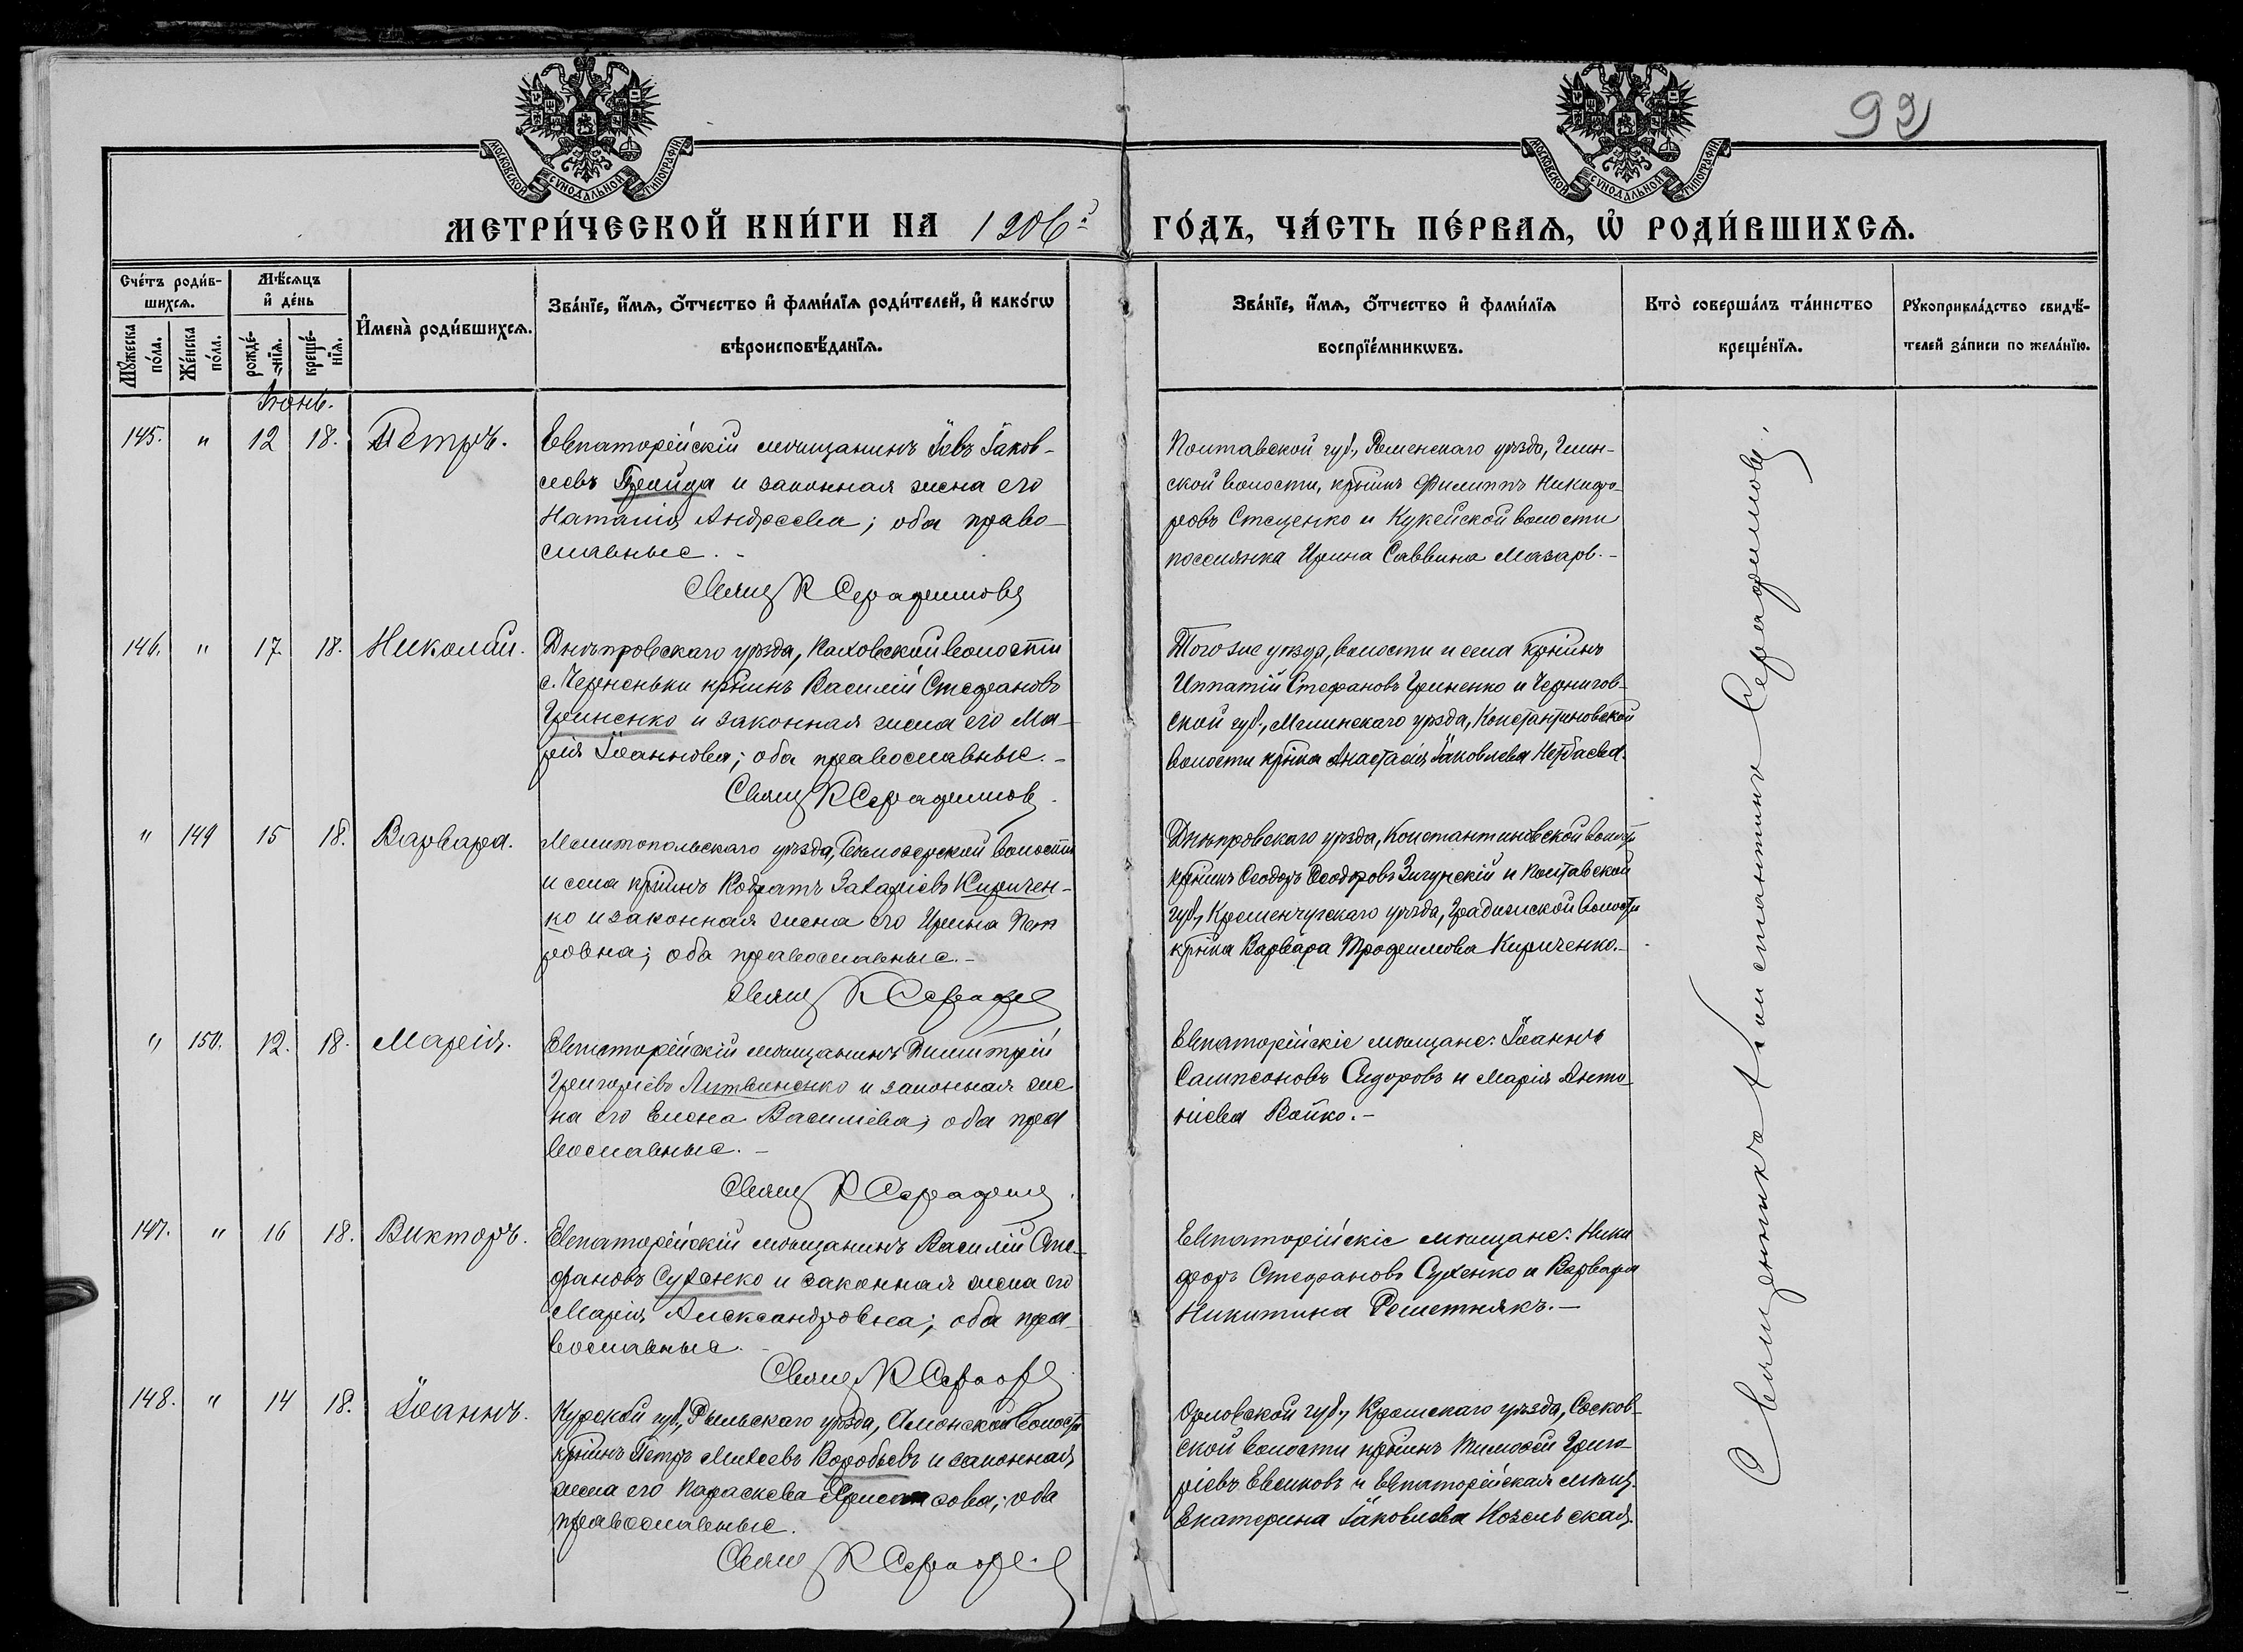 92
МОСКОВСКОЙ СѴНОДАЛЬНОЙ ТИПОГРАФІИ
МОСКОВСКОЙ СѴНОДАЛЬНОЙ ТИПОГРАФІИ
МЕТРИ́ЧЕСКОЙ КНИ́ГИ НА 1906й ГО́ДЪ, ЧА́СТЬ ПЕ́РВАѦ, Ѡ҆ РОДИ́ВШИХСѦ.
Сче́тъ роди́в-
шихсѧ.
Мꙋ́жеска по́ла.
Же́нска по́ла.
Мѣ́сѧцъ
и҆ де́нь
рожде́-нїѧ.
креще́-нїѧ.
И҆мена̀ роди́вшихсѧ.
Зва́нїе, и҆́мѧ, ѻ҆́тчество и҆ фами́лїѧ роди́телей, и҆ како́гѡ
вѣроисповѣ́данїѧ.
Зва́нїе, и҆́мѧ, ѻ҆́тчество и҆ фами́лїѧ
воспрїе́мникѡвъ.
Кто̀ соверша́лъ та́инство
креще́нїѧ.
Рꙋкоприкла́дство свидѣ́-
телей за́писи по жела́нїю.
Іюнь.
145. " 12 18. Петръ.
Евпаторійскій мѣщанинъ Іаковъ-
левъ и законная жена его
Наталія Андреева; оба право-
славные. -
Свящ К Серафимовъ
Полтавской губ., Роменскаго уѣзда, Глин-
ской волости, кр-нинъ Филиппъ Никифо-
ровъ Стеценко и Кукейской волости
поселянка Ирина Саввина Мазаръ. -
146. " 17 18. Николай.
Днѣпровскаго уѣзда, Каховской волости
с. Черненьки кр-нинъ Василій Стефановъ
Гриненко и законная жена его Ма-
рія Іоаннова; оба православные. -
Свящ К Серафимов
Того же уѣзда, волости и села кр-нинъ
Ипатій Стефановъ Гриненко и Чернигов-
ской губ., Мглинскаго уѣзда, Константиновской
волости кр-нка Анастасія Іаковлева
" 149 15 18. Варвара.
Мелитопольскаго уѣзда, Бѣлозерской волости
и села кр-нинъ Кодратъ Захаріевъ Киричен-
ко и законная жена его Ирина Пет
ровна; оба православные. -
Свящ К Сераф
Днѣпровскаго уѣзда, Константиновской волости
кр-нинъ Ѳеодоръ Ѳеодоровъ и Полтавской
губ., Кременчугскаго уѣзда, Градижской волости
кр-нка Варвара Трофимова Кириченко. -
" 150. 12. 18. Марія.
Евпаторійскій мѣщанинъ Димитрій
Григоріевъ Литвиненко и законная же
на его Елена Василіева; оба пра
вославные. -
Свящ К Серафим
Евпаторійскіе мѣщане: Іоаннъ
Сампсоновъ Сидоровъ и Марія Анто-
ніева Войко. -
147. " 16 18. Викторъ.
Евпаторійскій мѣщанинъ Василій Сте-
фановъ Сухенко и законная жена его
Марія Александровна; оба пра-
вославные. -
Свящ К Сераф
Евпаторійскіе мѣщане: Ники
форъ Стефановъ Сухенко и Варвара
Никитина Решетнякъ. -
148. " 14 18. Іоаннъ.
Курской губ., Рыльскаго уѣзда, Амонской волости
кр-нинъ Петръ Михеевъ Воробьевъ и законная
жена его Параскева оба
православные.
Свящ К Сераф
Орловской губ., Кромскаго уѣзда, Сосков-
ской волости кр-нинъ Тимоѳей Григо-
ріевъ Евсиковъ и Евпаторійская мѣщ.
Екатерина Іаковлева Козельская.
Священникъ Константинъ Серафимовъ.